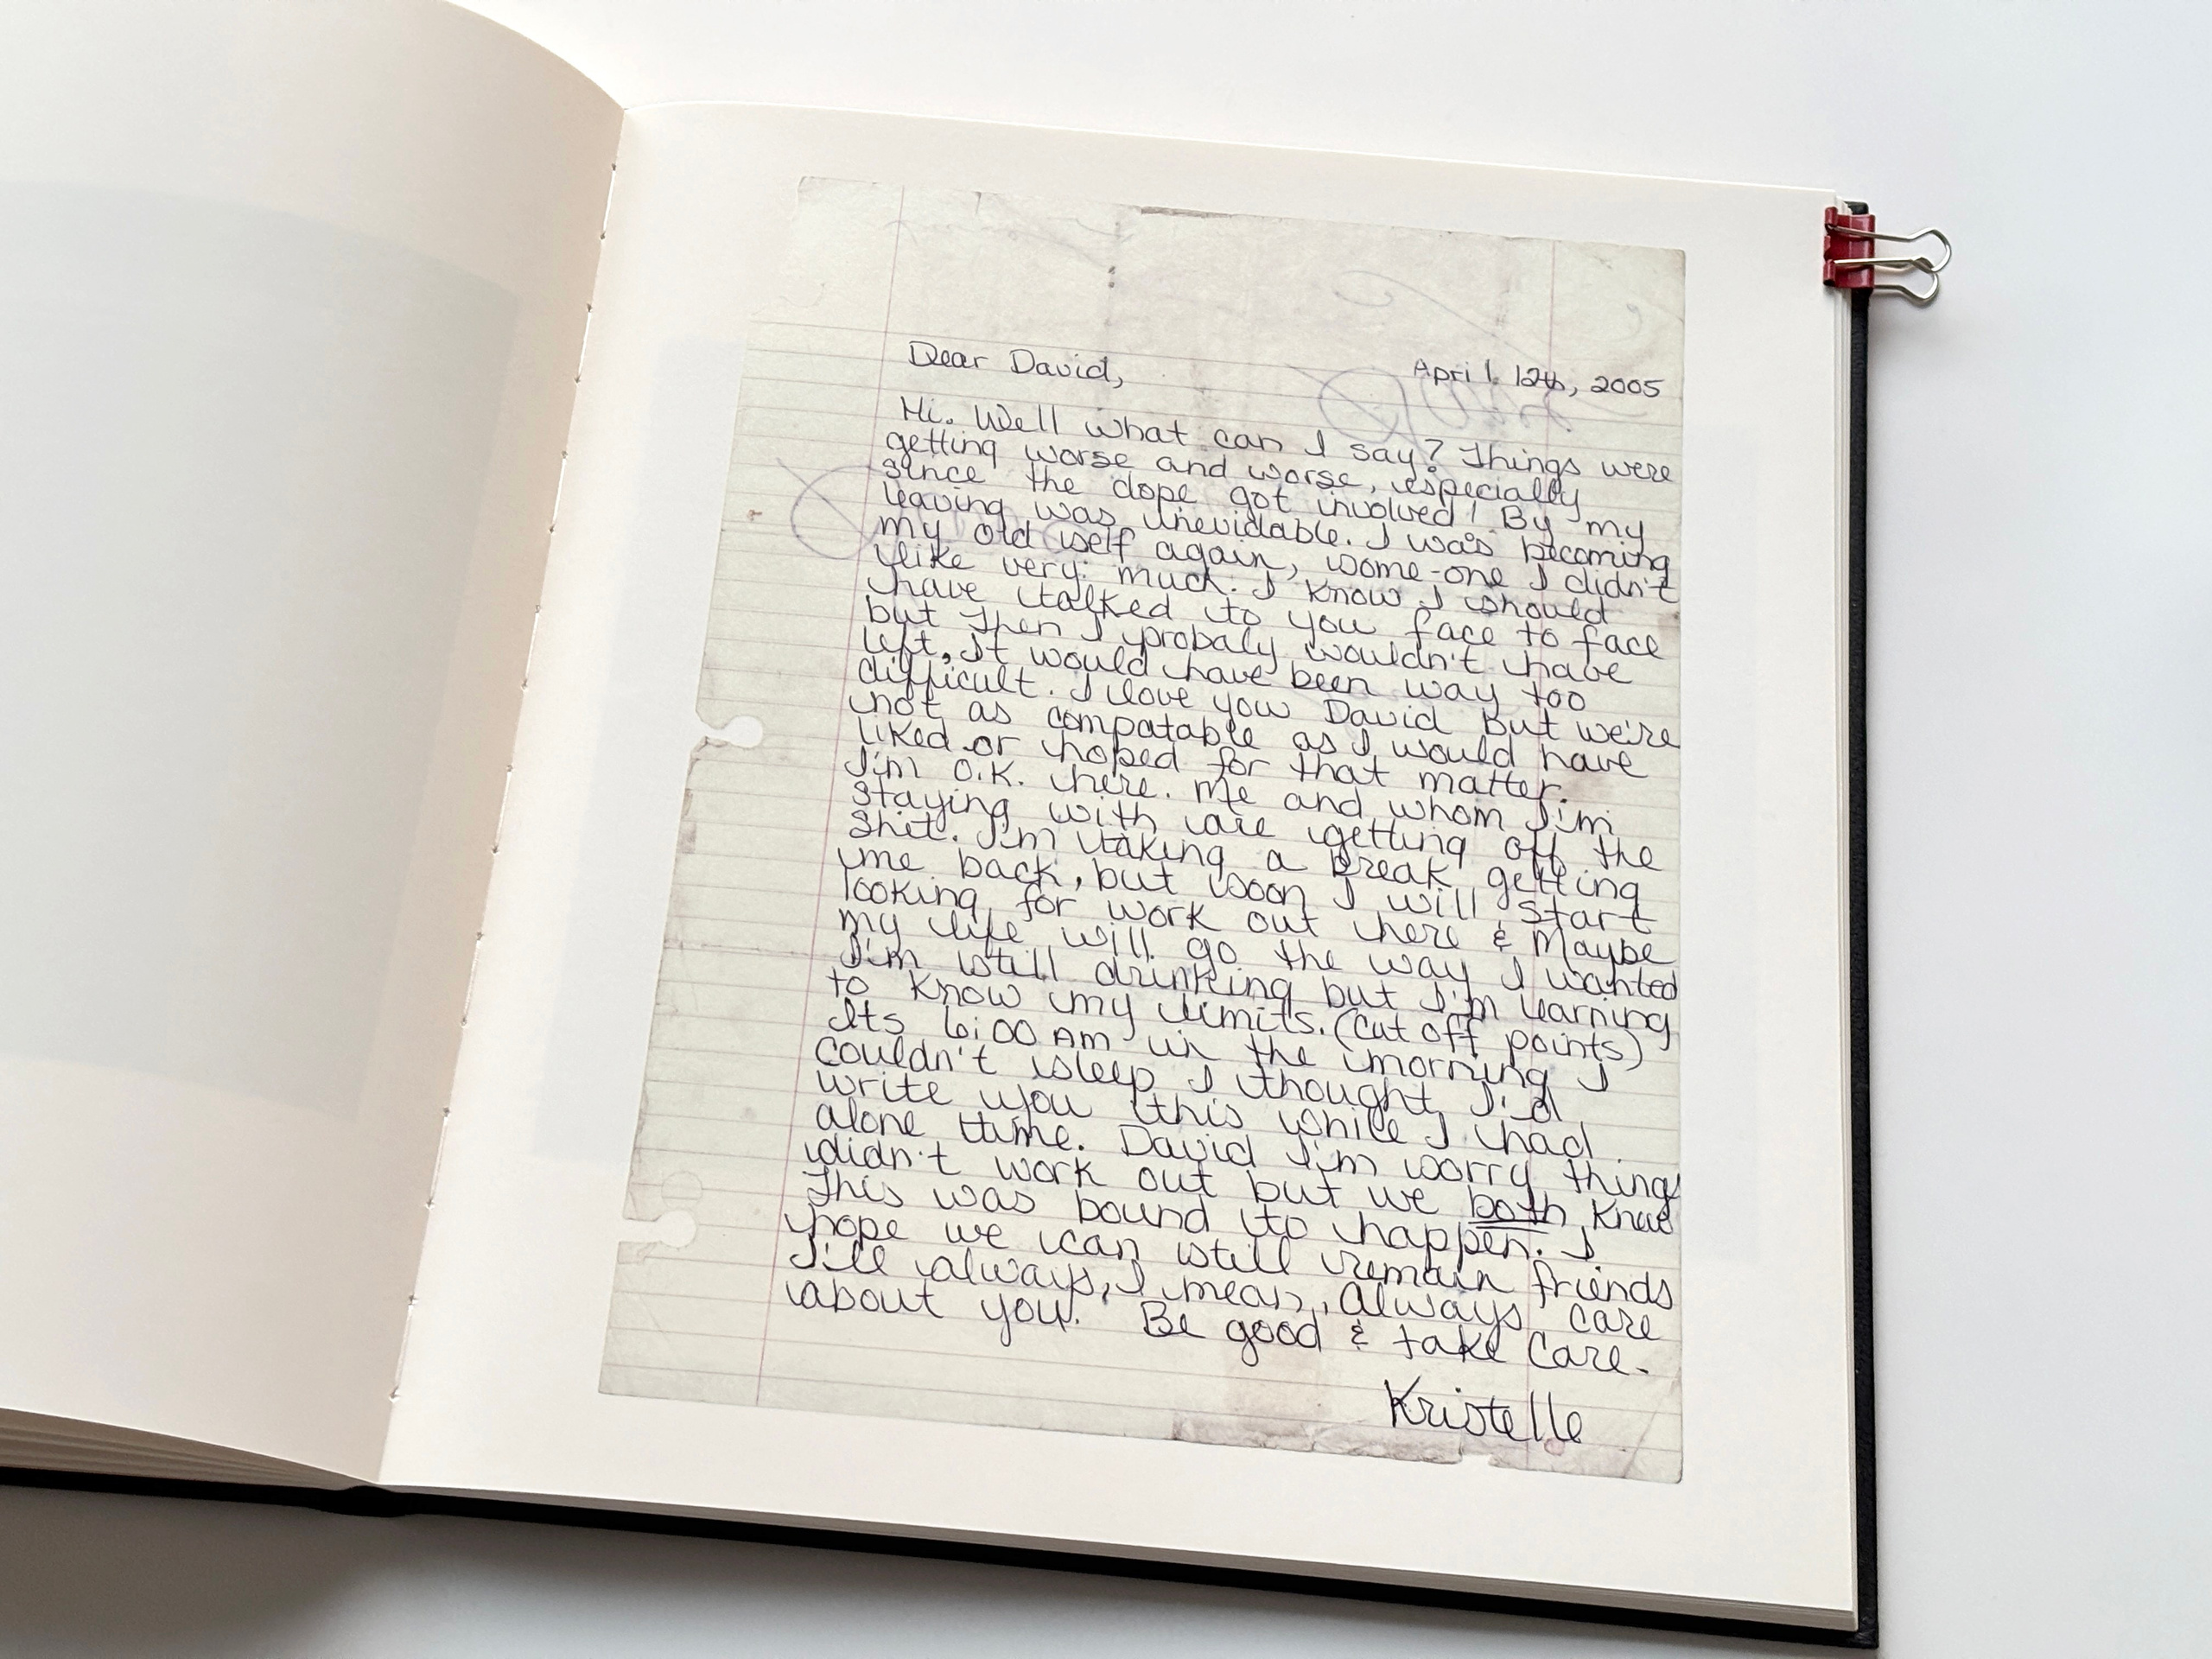 Dear David,
April 12th, 2005
Hi. Well what can I say? Things were
getting worse and worse, especially
since the dope got involved! By my
leaving was unevidable. I was becoming
my old self again, some-one I didn't
like very much. I know I should
have talked to you face to face
but then I probaly wouldn't have
left, It would have been way too
difficult. I love you David but we're
not as compatable as I would have
liked or hoped for that matter.
I'm O.K. here. Me and whom I'm
staying with are getting off the
shit. I'm taking a break, getting
me back, but soon I will start
looking for work out here & Maybe
my life will go the way I wanted
I'm still drinking but I'm learning
to know my limits. (Cut off points)
Its 6:00 AM in the morning I
couldn't sleep I thought I'd
write you this while I had
alone time. David I'm sorry things
didn't work out but we both knew
this was bound to happen. I
hope we can still remain friends
I'll always, I mean, Always care
about you. Be good & take care.
Kristelle